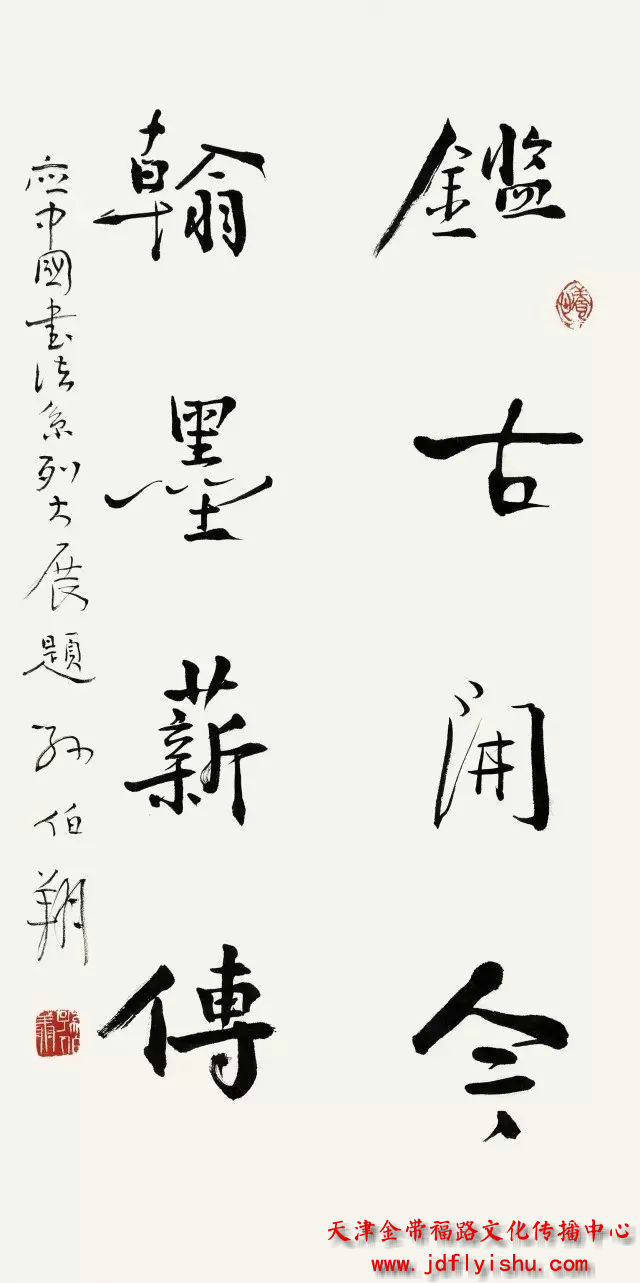 鑑古開今
翰墨薪傳
應中國書法系列大展題 孫伯翔
天津金带福路文化传播中心
www.jdflyishu.com